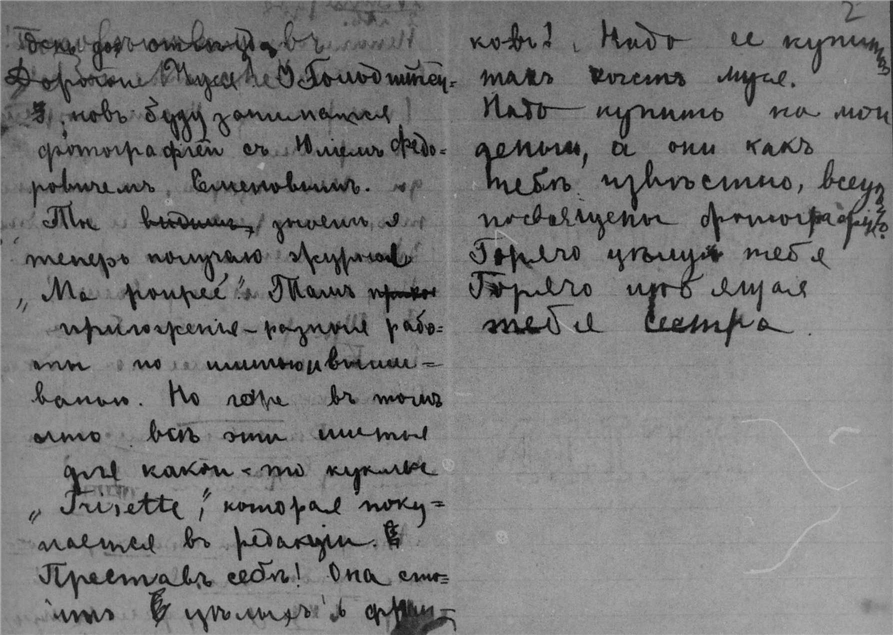 Дорогие
новъ буду заниматся
фотографіей съ Юліемъ Федо=
ровичемъ
Ты видишь, знаешь я
теперь получаю журналъ
„Ma poupeé“. Тамъ
приложенія – разныя рабо=
ты по шитью и вышы=
ванью. Но горе въ томъ
што всѣ эти шитья
для какой-то куклы
„Frisette“, которая поку=
пается въ редакціи.
Преставь себѣ! Она сто=
итъ 6 цѣлыхъ фран=
2
ковъ! Надо ее купить
такъ муся.
Надо купить на мои
деньги, а они какъ
тебѣ извѣстно, всецѣло
посвящены фотографіи.
Горячо цѣлую тебя
Горячо любящая
тебя сестра.